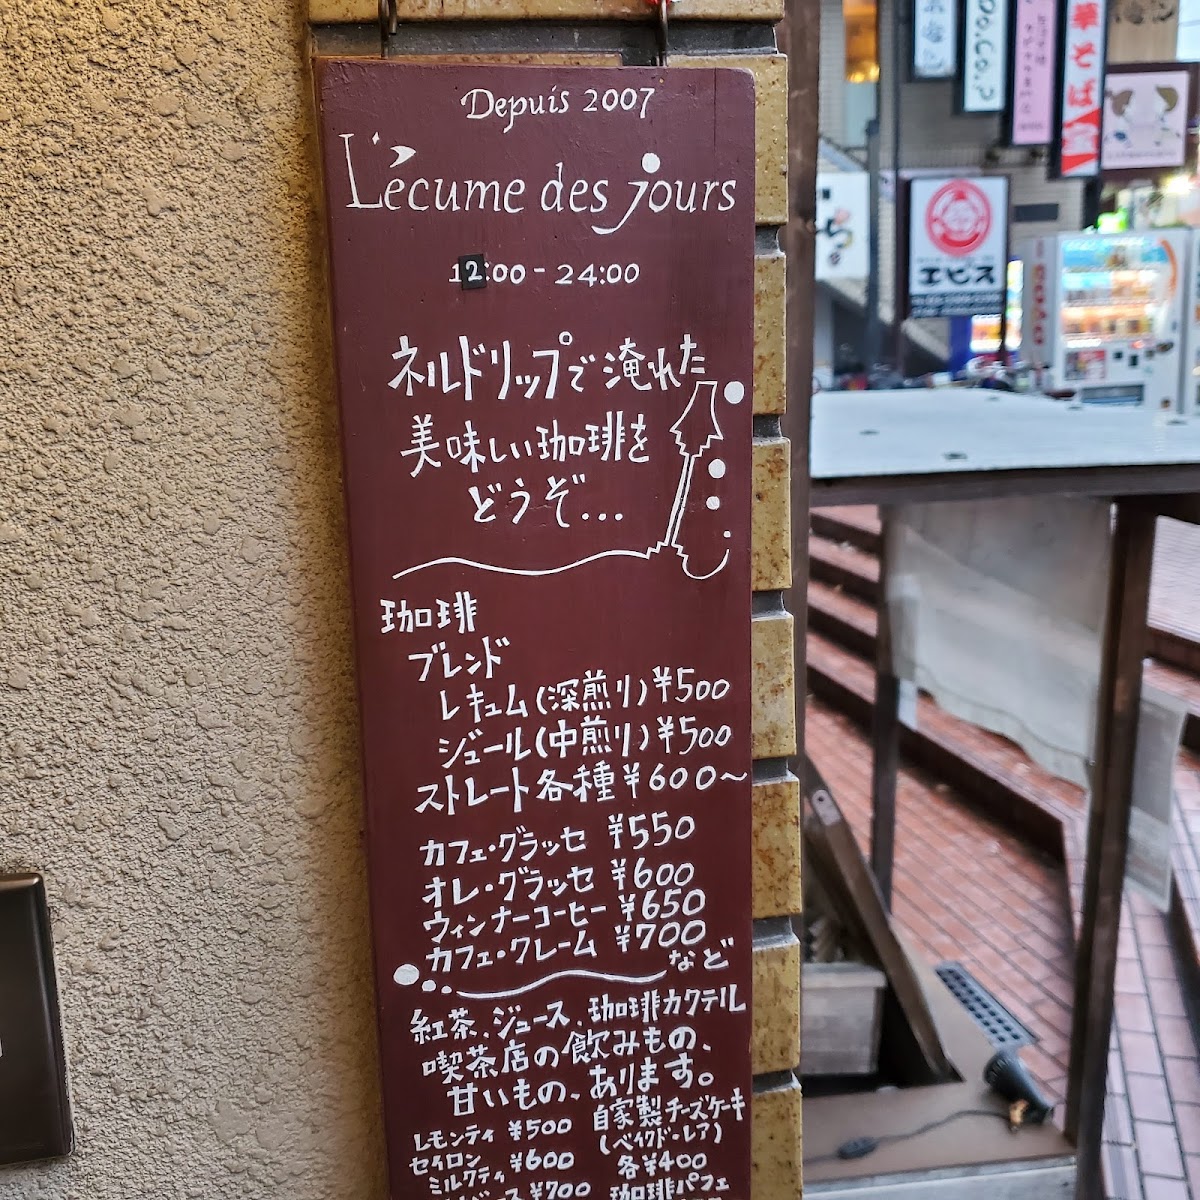 Depuis 2007
L'écume des jours
12:00 - 24:00
ネルドリップで淹れた
美味しい珈琲を
どうぞ...
珈琲
ブレンド
レキュム(深煎り)¥500
ジュール(中煎り)¥500
ストレート各種¥600～
カフェ・グラッセ ¥550
オレ・グラッセ ¥600
ウィンナーコーヒー ¥650
カフェ・クレーム ¥700
など
紅茶、ジュース、珈琲カクテル
喫茶店の飲みもの、
甘いもの、あります。
レモンティ ¥500
セイロン ¥600
ミルクティ
ース ¥700
自家製チーズケーキ
(ベイクド・レア)
各¥400
珈琲パフェ
華そば
エビス